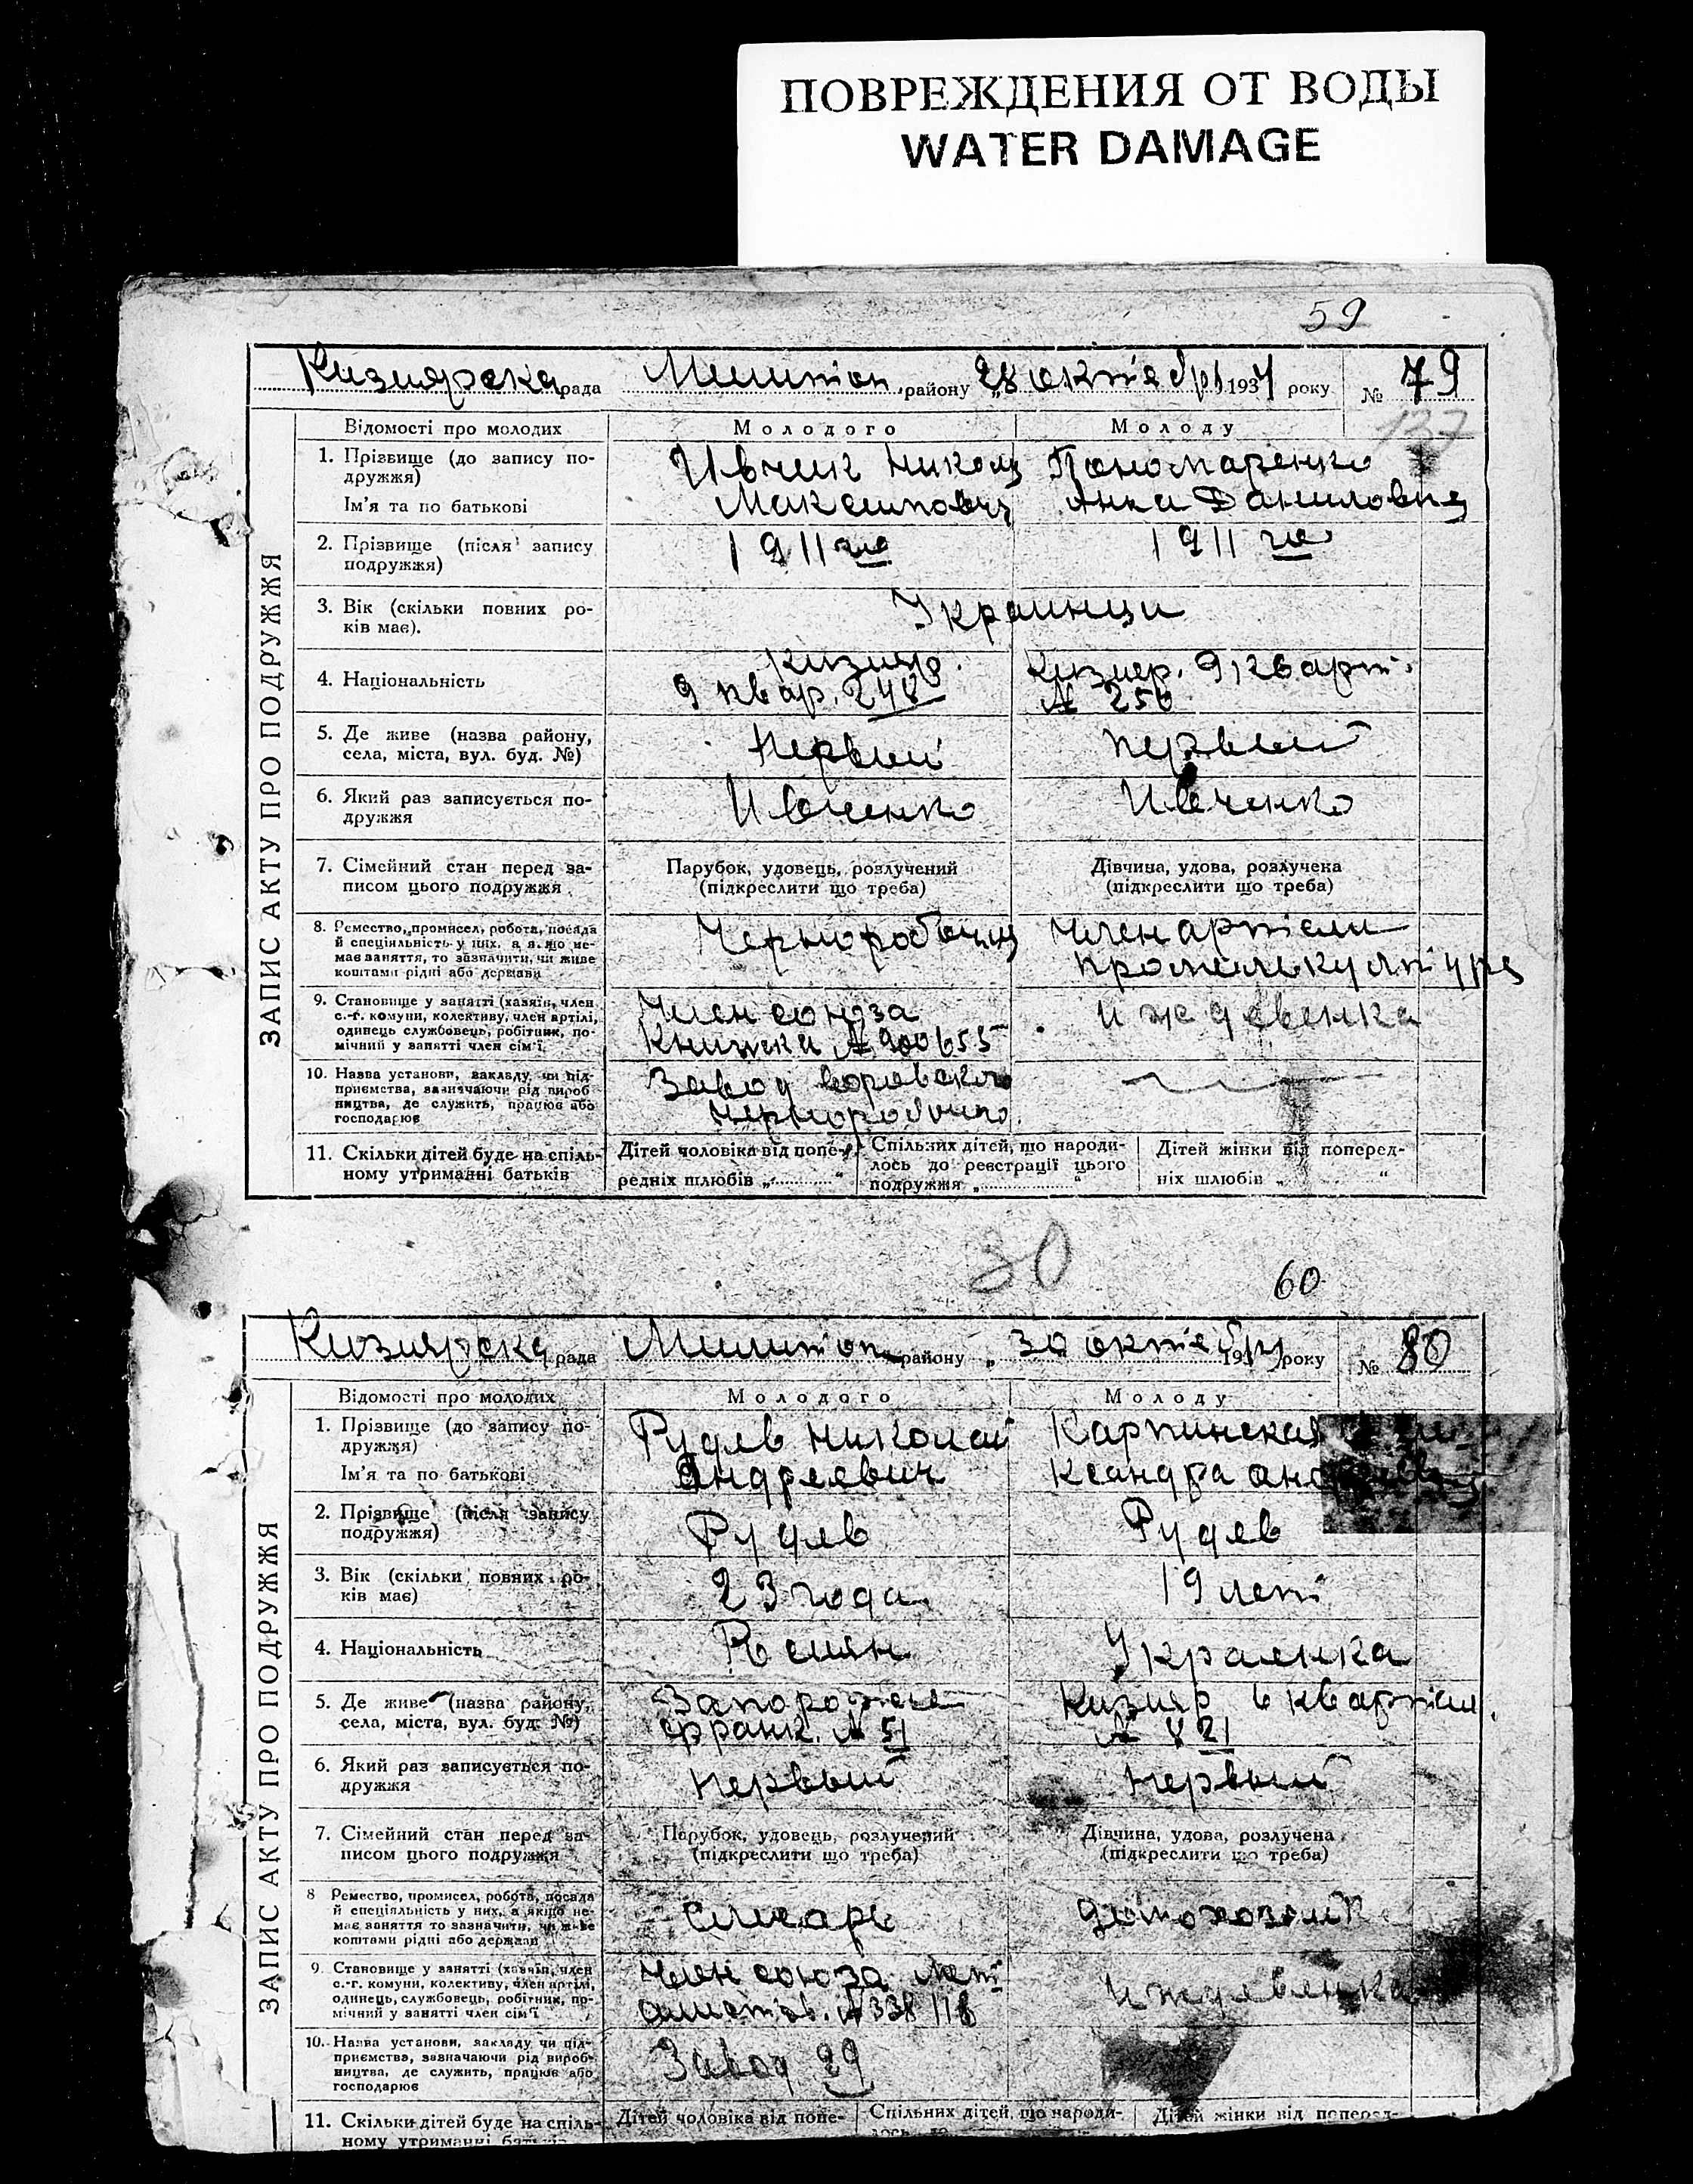 ПОВРЕЖДЕНИЯ ОТ ВОДЫ
WATER DAMAGE
59
Кизиярска рада Мелитоп району „28 октября 1934 року № 79
137
ЗАПИС АКТУ ПРО ПОДРУЖЖЯ
Відомості про молодих Молодого Молоду
1. Прізвище (до запису по-
дружжя)
Ім'я та по батькові
Ивчик Николай
Максимович
Пономаренко
Анна Даниловна
2. Прізвище (після запису
подружжя)
1911 го
1911 го
3. Вік (скільки повних ро-
ків має).
Украинци
4. Національність
Кизияр.
9 квар. 248
Кизияр. 9 кварт.
№ 256
5. Де живе (назва району,
села, міста, вул. буд. №)
Первый
первый
6. Який раз записується по-
дружжя
Ивченко
Ивченко
7. Сімейний стан перед за-
писом цього подружжя
Парубок, удовець, розлучений
(підкреслити що треба)
Дівчина, удова, розлучена
(підкреслити що треба)
8. Ремество, промисел, робота, посада
й спеціяльність у них, а якщо не-
має заняття, то зазначити, чи живе
коштами рідні або держави
Чернорабочий
Член артели
9. Становище у занятті (хазяїн, член
с.-г. комуни, колективу, член артілі,
одинець, службовець, робітник, по-
мічний у занятті член сім'ї
Член союза
Книжка № 900655
иждевенка
10. Назва установи, закладу, чи під-
приємства, зазначаючи рід вироб-
ництва, де служить, працює або
господарює
Завод Воровского
11. Скільки дітей буде на спіль-
ному утриманні батьків
Дітей чоловіка від попе-
редніх шлюбів „ “
Спільних дітей, що народи-
лось до реєстрації цього
подружжя „ “
Дітей жінки від поперед-
ніх шлюбів „ “
30
60
Кизиярска рада Мелитоп району „ 30 октября 1934 року № 80
ЗАПИС АКТУ ПРО ПОДРУЖЖЯ
Відомості про молодих Молодого Молоду
1. Прізвище (до запису по-
дружжя)
Ім'я та по батькові
Рудев Николай
Андреевич
Карпинская
ксандра
2. Прізвище (після запису
подружжя)
Рудев
Рудев
3. Вік (скільки повних ро-
ків має)
23 года
19 лет
4. Національність
Украенка
5. Де живе (назва району,
села, міста, вул. буд. №)
Запорожье
франк. № 51
Кизияр 6 квартал.
№ 821
6. Який раз записується по-
дружжя
Первый
Первый
7. Сімейний стан перед за-
писом цього подружжя
Парубок, удовець, розлучений
(підкреслити що треба)
Дівчина, удова, розлучена
(підкреслити що треба)
8 Ремество, промисел, робота, посада
й спеціяльність у них, а якщо не-
має заняття то зазначити, чи живе
коштами рідні або держави
Слесарь
домохозяйк
9. Становище у занятті (хазяїн, член
с.-г. комуни, колективу, член артілі,
одинець, службовець, робітник, по-
мічний у занятті член сім'ї
Член союза
№ 338118
Иждевенка
10. Назва установи, закладу чи під-
приємства, зазначаючи рід вироб-
ництва, де служить, працює або
господарює
Завод 29
11. Скільки дітей буде на спіль-
ному утриманні
Дітей чоловіка від попе-
Спільних дітей, що народи-
Дітей жінки від поперед-